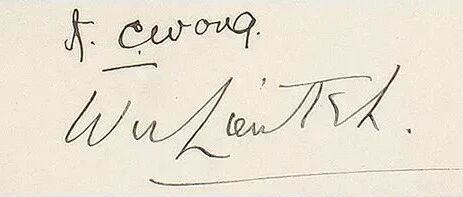 A. C. Wong.
Wu Lien Teh.